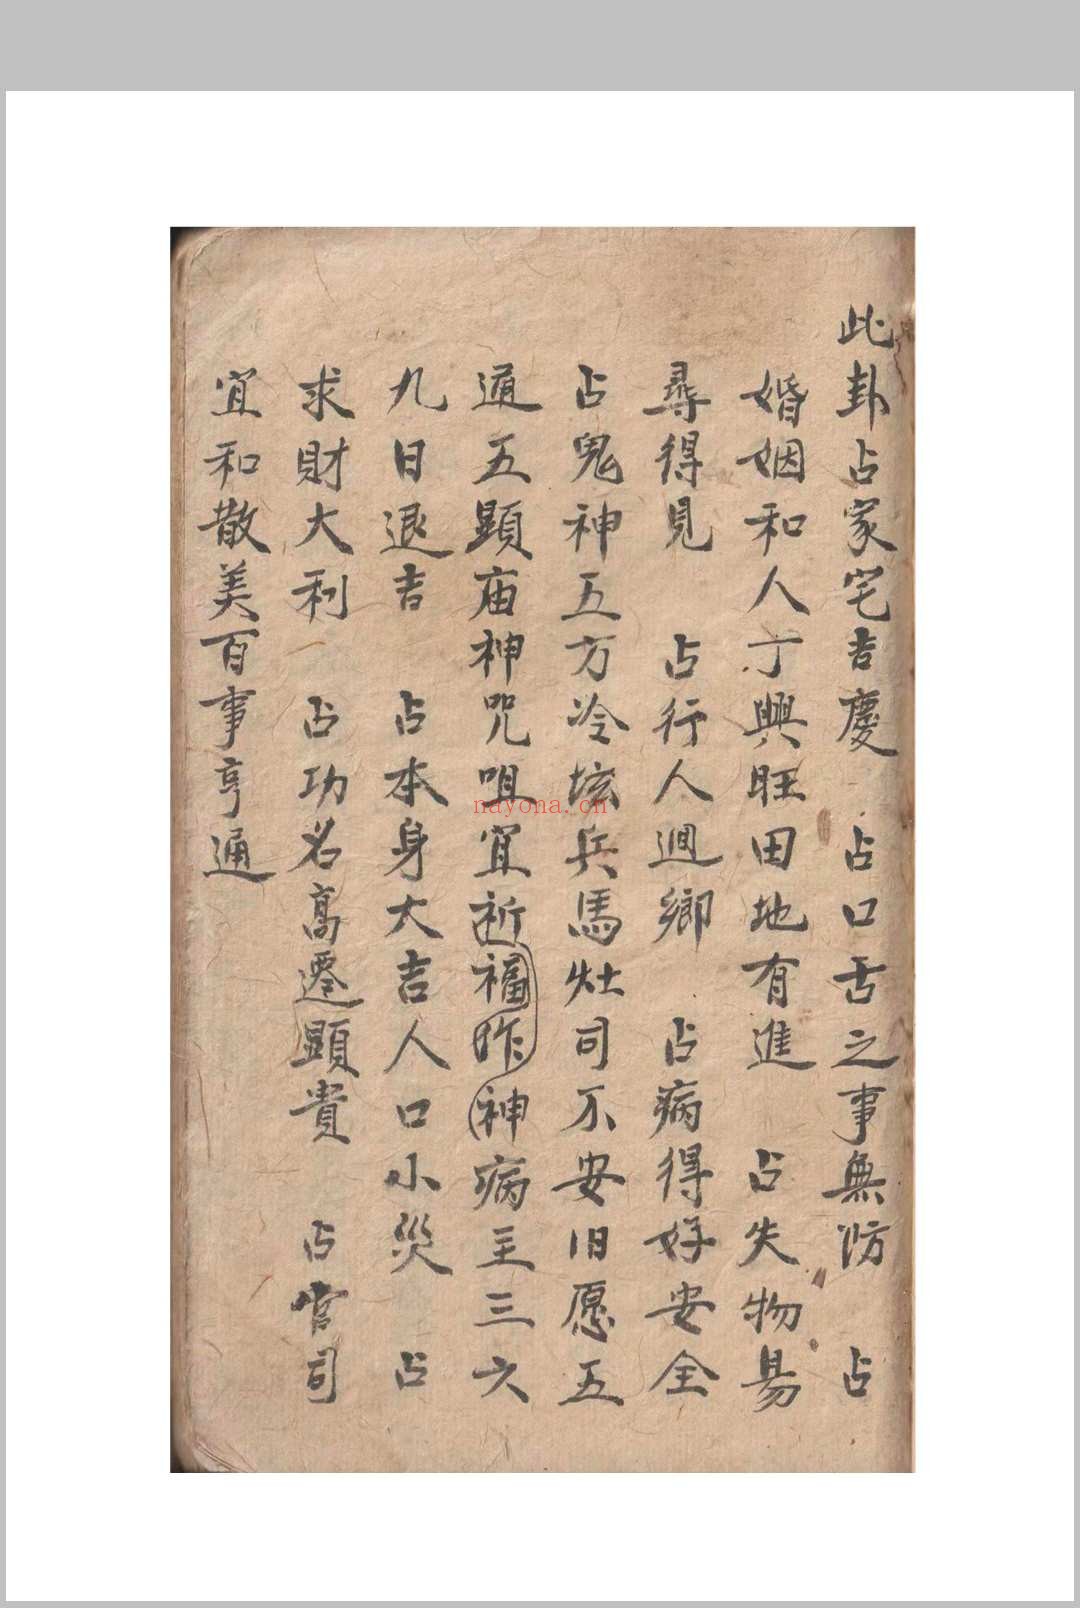 此卦占家宅吉慶 占口舌之事無防 占
婚姻和人丁興旺田地有進 占失物易
尋得見 占行人迴鄉 占病得好安全
占鬼神五方冷坛兵馬灶司不安旧愿五
通五顕庙神咒咀宜祈福昨神病主三六
九日退吉 占本身大吉人口小災 占
求財大利 占功名高遷顕貴 占官司
宜和散美百事亨通
nayona.cn